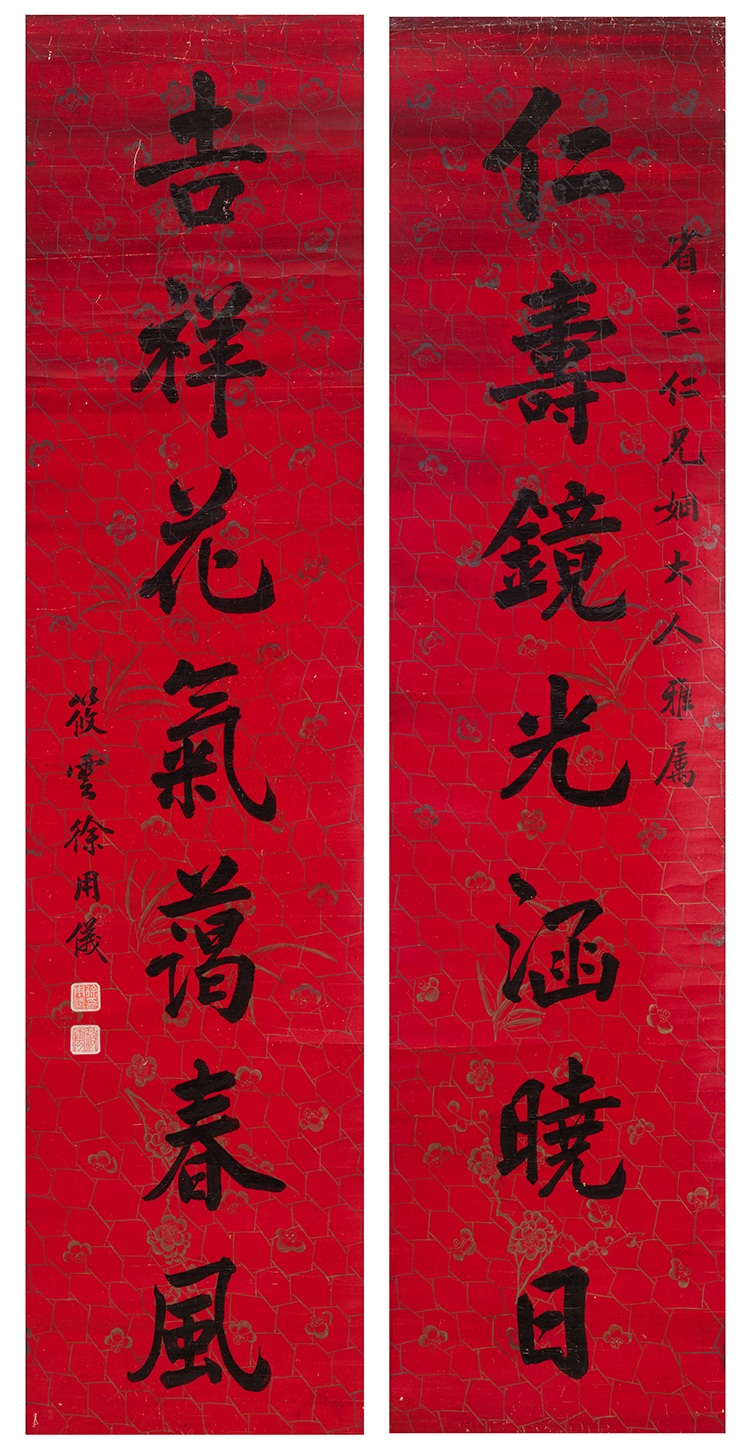 省三仁兄姻大人雅属
仁壽鏡光涵曉日
吉祥花氣藹春風
筱雲徐用儀